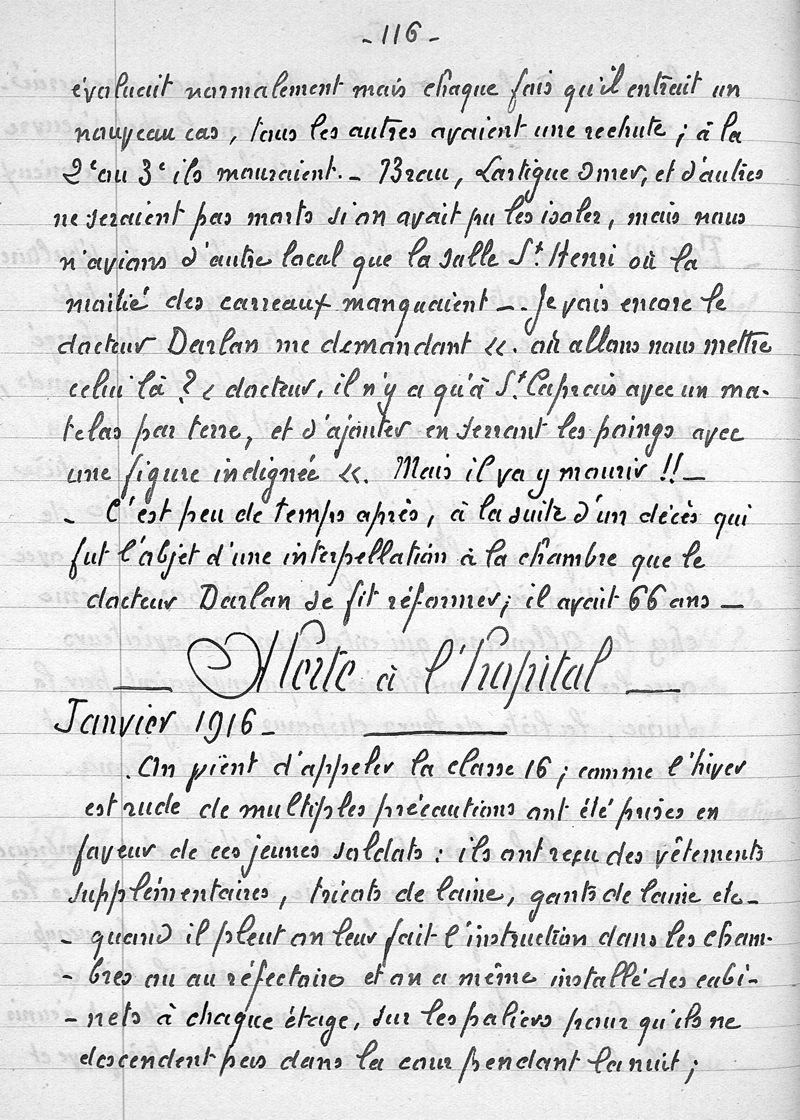 - 116 -
évaluait normalement mais chaque fois qu'il entrait un
nouveau cas, tous les autres avaient une rechute ; à la
2e ou 3e ils mouraient. - Breau, Lartigue Omer, et d'autres
ne seraient pas morts si on avait pu les isoler, mais nous
n'avions d'autre local que la salle St. Henri où la
moitié des carreaux manquaient -. Je vois encore le
docteur Darlan me demandant «. où allons nous mettre
celui là ? « docteur, il n'y a qu'à St. Caprais avec un ma-
telas par terre, et d'ajouter en serrant les poings avec
une figure indignée «. Mais il va y mourir !! -
- C'est peu de temps après, à la suite d'un décès qui
fut l'objet d'une interpellation à la chambre que le
docteur Darlan se fit réformer ; il avait 66 ans -
- Alerte à l'hopital -
Janvier 1916 -
. On vient d'appeler la classe 16 ; comme l'hiver
est rude de multiples précautions ont été prises en
faveur de ces jeunes soldats : ils ont reçu des vêtements
supplémentaires, tricots de laine, gants de laine etc-
- quand il pleut on leur fait l'instruction dans les cham-
- bres ou au réfectoire et on a même installé des cabi-
- nets à chaque étage, sur les paliers pour qu'ils ne
descendent pas dans la cour pendant la nuit ;